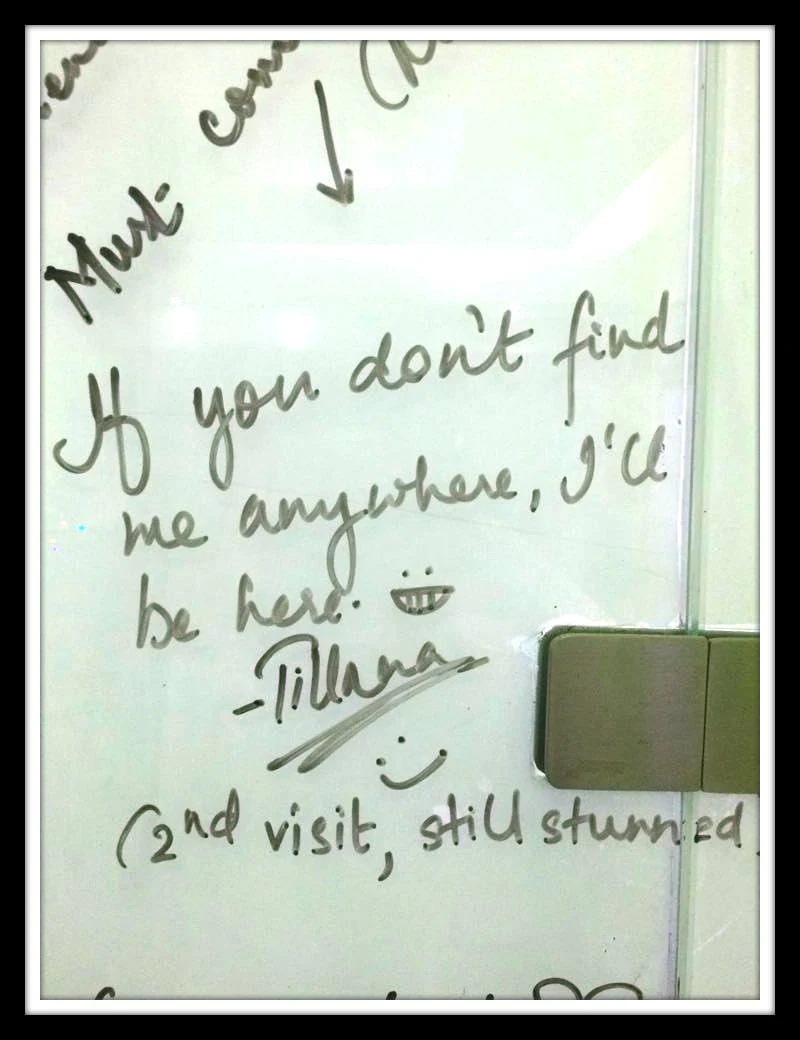 Must
If you don't find
me anywhere, I'll
be here.
-Tillana
(2nd visit, still stunned